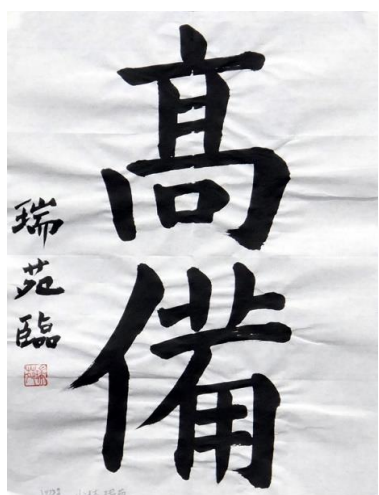 髙備
瑞苑臨